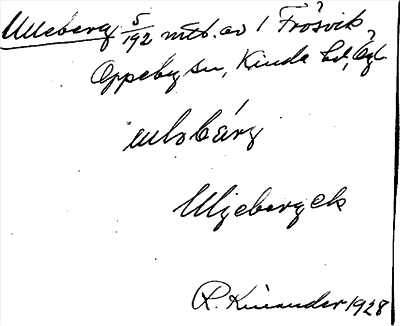 Ulleberg 5/192 mtl. av 1 Frösvik
Oppeby sn, Kinda hd, Ög.
Uljeberg ek
R. Kinander 1928